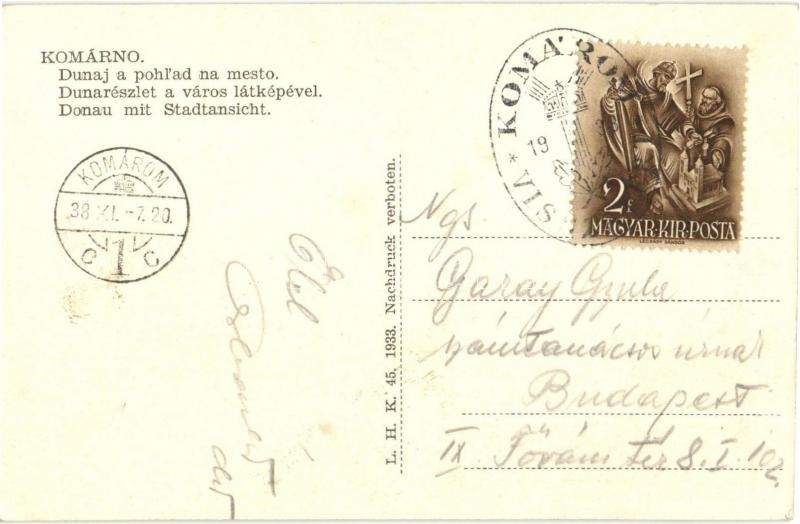 KOMÁRNO.
Dunaj a pohľad na mesto.
Dunarészlet a város látképével.
Donau mit Stadtansicht.
KOMÁROM
38 XI. -7. 20.
C 1 C
L. H. K. 45. 1933. Nachdruck verboten.
KOMÁROM
19
VIS
SIA
2f
MAGYAR·KIR·POSTA
LÉGRÁDY SÁNDOR
Ngs.
Garay Gyula
számtanácsos úrnak
Budapest
IX Fővám tér 8. I.